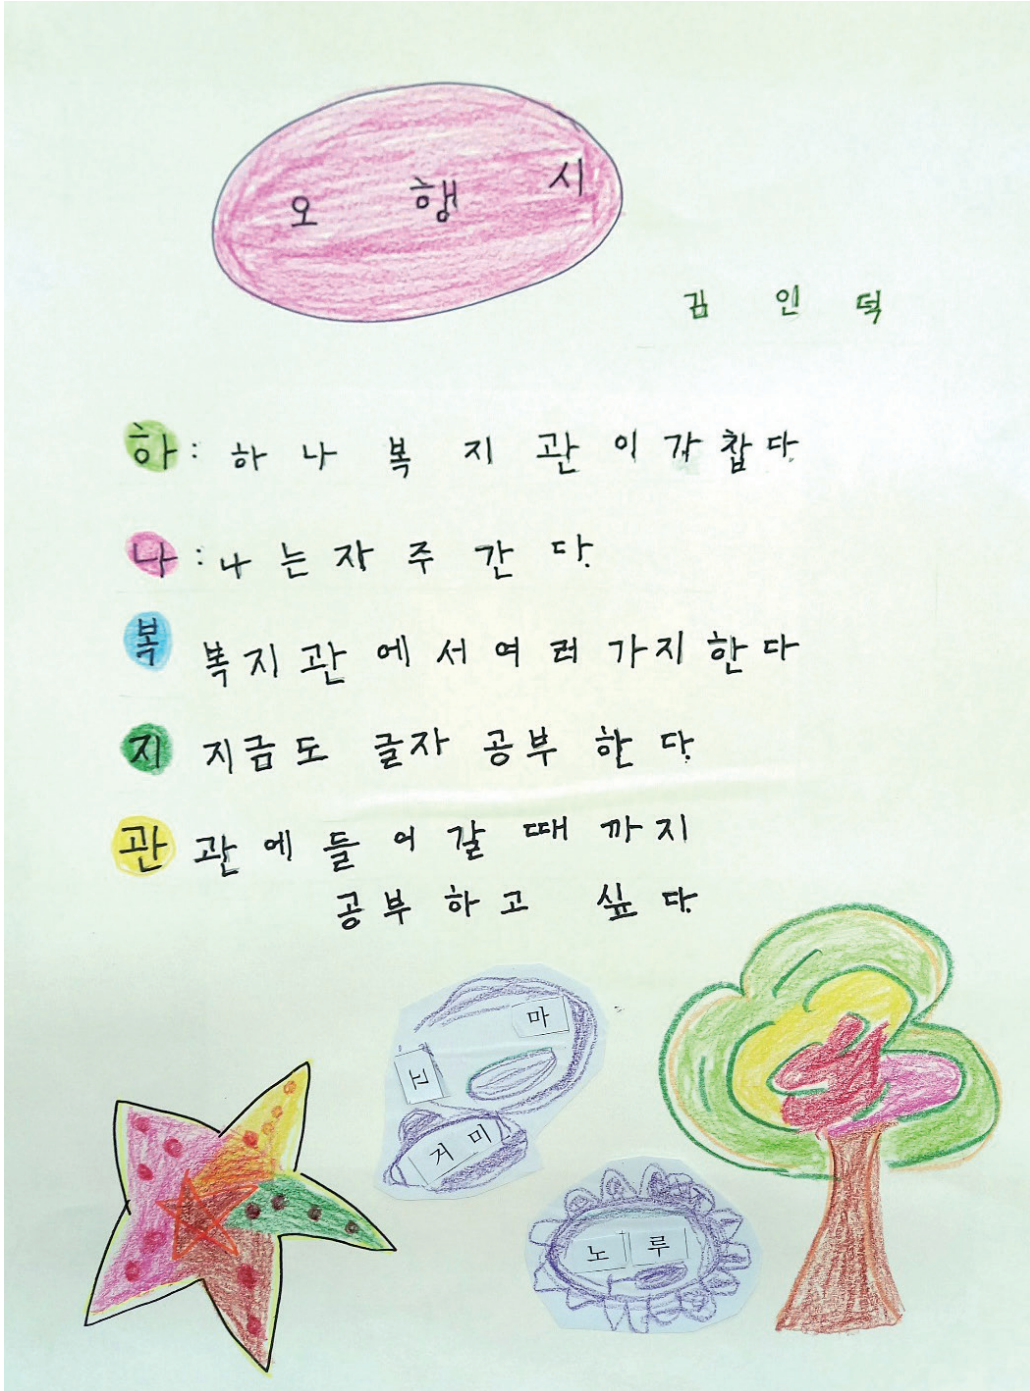 오 행 시
김 인 덕
하 : 하 나 복 지 관 이 가 찹 다
나 : 나 는 자 주 간 다.
복 복 지 관 에 서 여 러 가 지 한 다
지 지 금 도 글 자 공 부 한 다.
관 관 에 들 어 갈 때 까 지
공 부 하 고 싶 다.
마
고
거 미
노 루